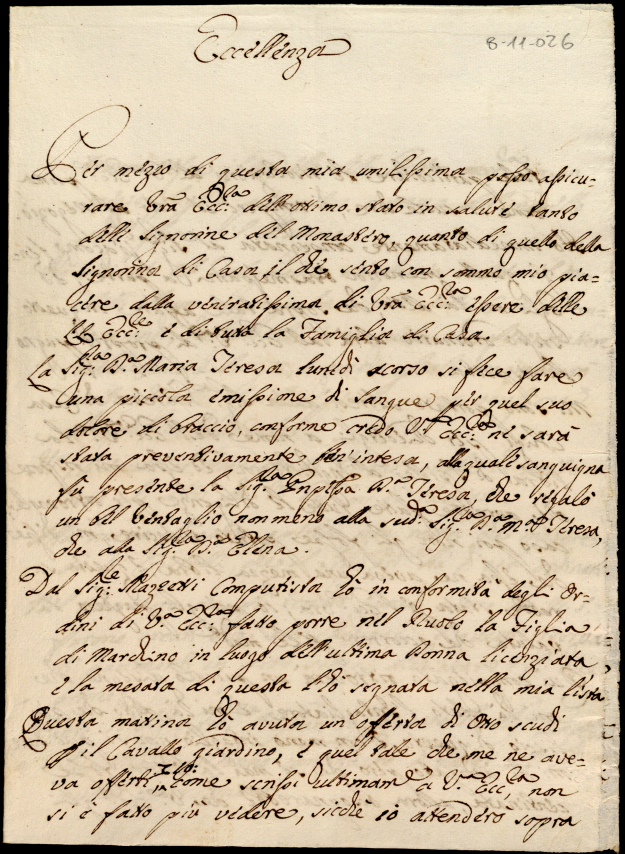 Eccellenza
8-11-026
Per mezzo di questa mia umilissima posso assicu-
rare Vra Ecc.za dell'ottimo stato in salute tanto
delle Signorine del Monastero, quanto di quello della
Signorina di Casa il che sento con sommo mio pia-
cere dalla veneratissima di Vra Ecc.za essere delle
Ecc.ze e di tutta la Famiglia di Casa
La Sig.ra D.a Maria Teresa lunedì scorso si fece fare
una piccola emissione di sangue per quel suo
dolore di braccio, conforme credo V.a Ecc.za ne sarà
stata preventivamente ben'intesa, alla quale sanguigna
fù presente la Sig.ra Pnpessa D.a Teresa, che regalò
un bel ventaglio non meno alla sud.a Sig.ra D.a M.a Teresa,
che alla Sig.ra D.a Elena.
Dal Sig.re Mazzetti Computista hò in conformità degli Or-
dini di V.a Ecc.za fatto porre nel Ruolo la Figlia
di Marchino in luogo dell'ultima Donna licenziata,
e la mesata di questa l'hò segnata nella mia lista
Questa matina hò avuta un offerta di otto scudi
p il Cavallo giardino, e quel tale che me ne ave-
va offerti come scrissi ultimam.e a V.a Ecc.za, non
si è fatto più vedere, sicchè io attenderò sopra